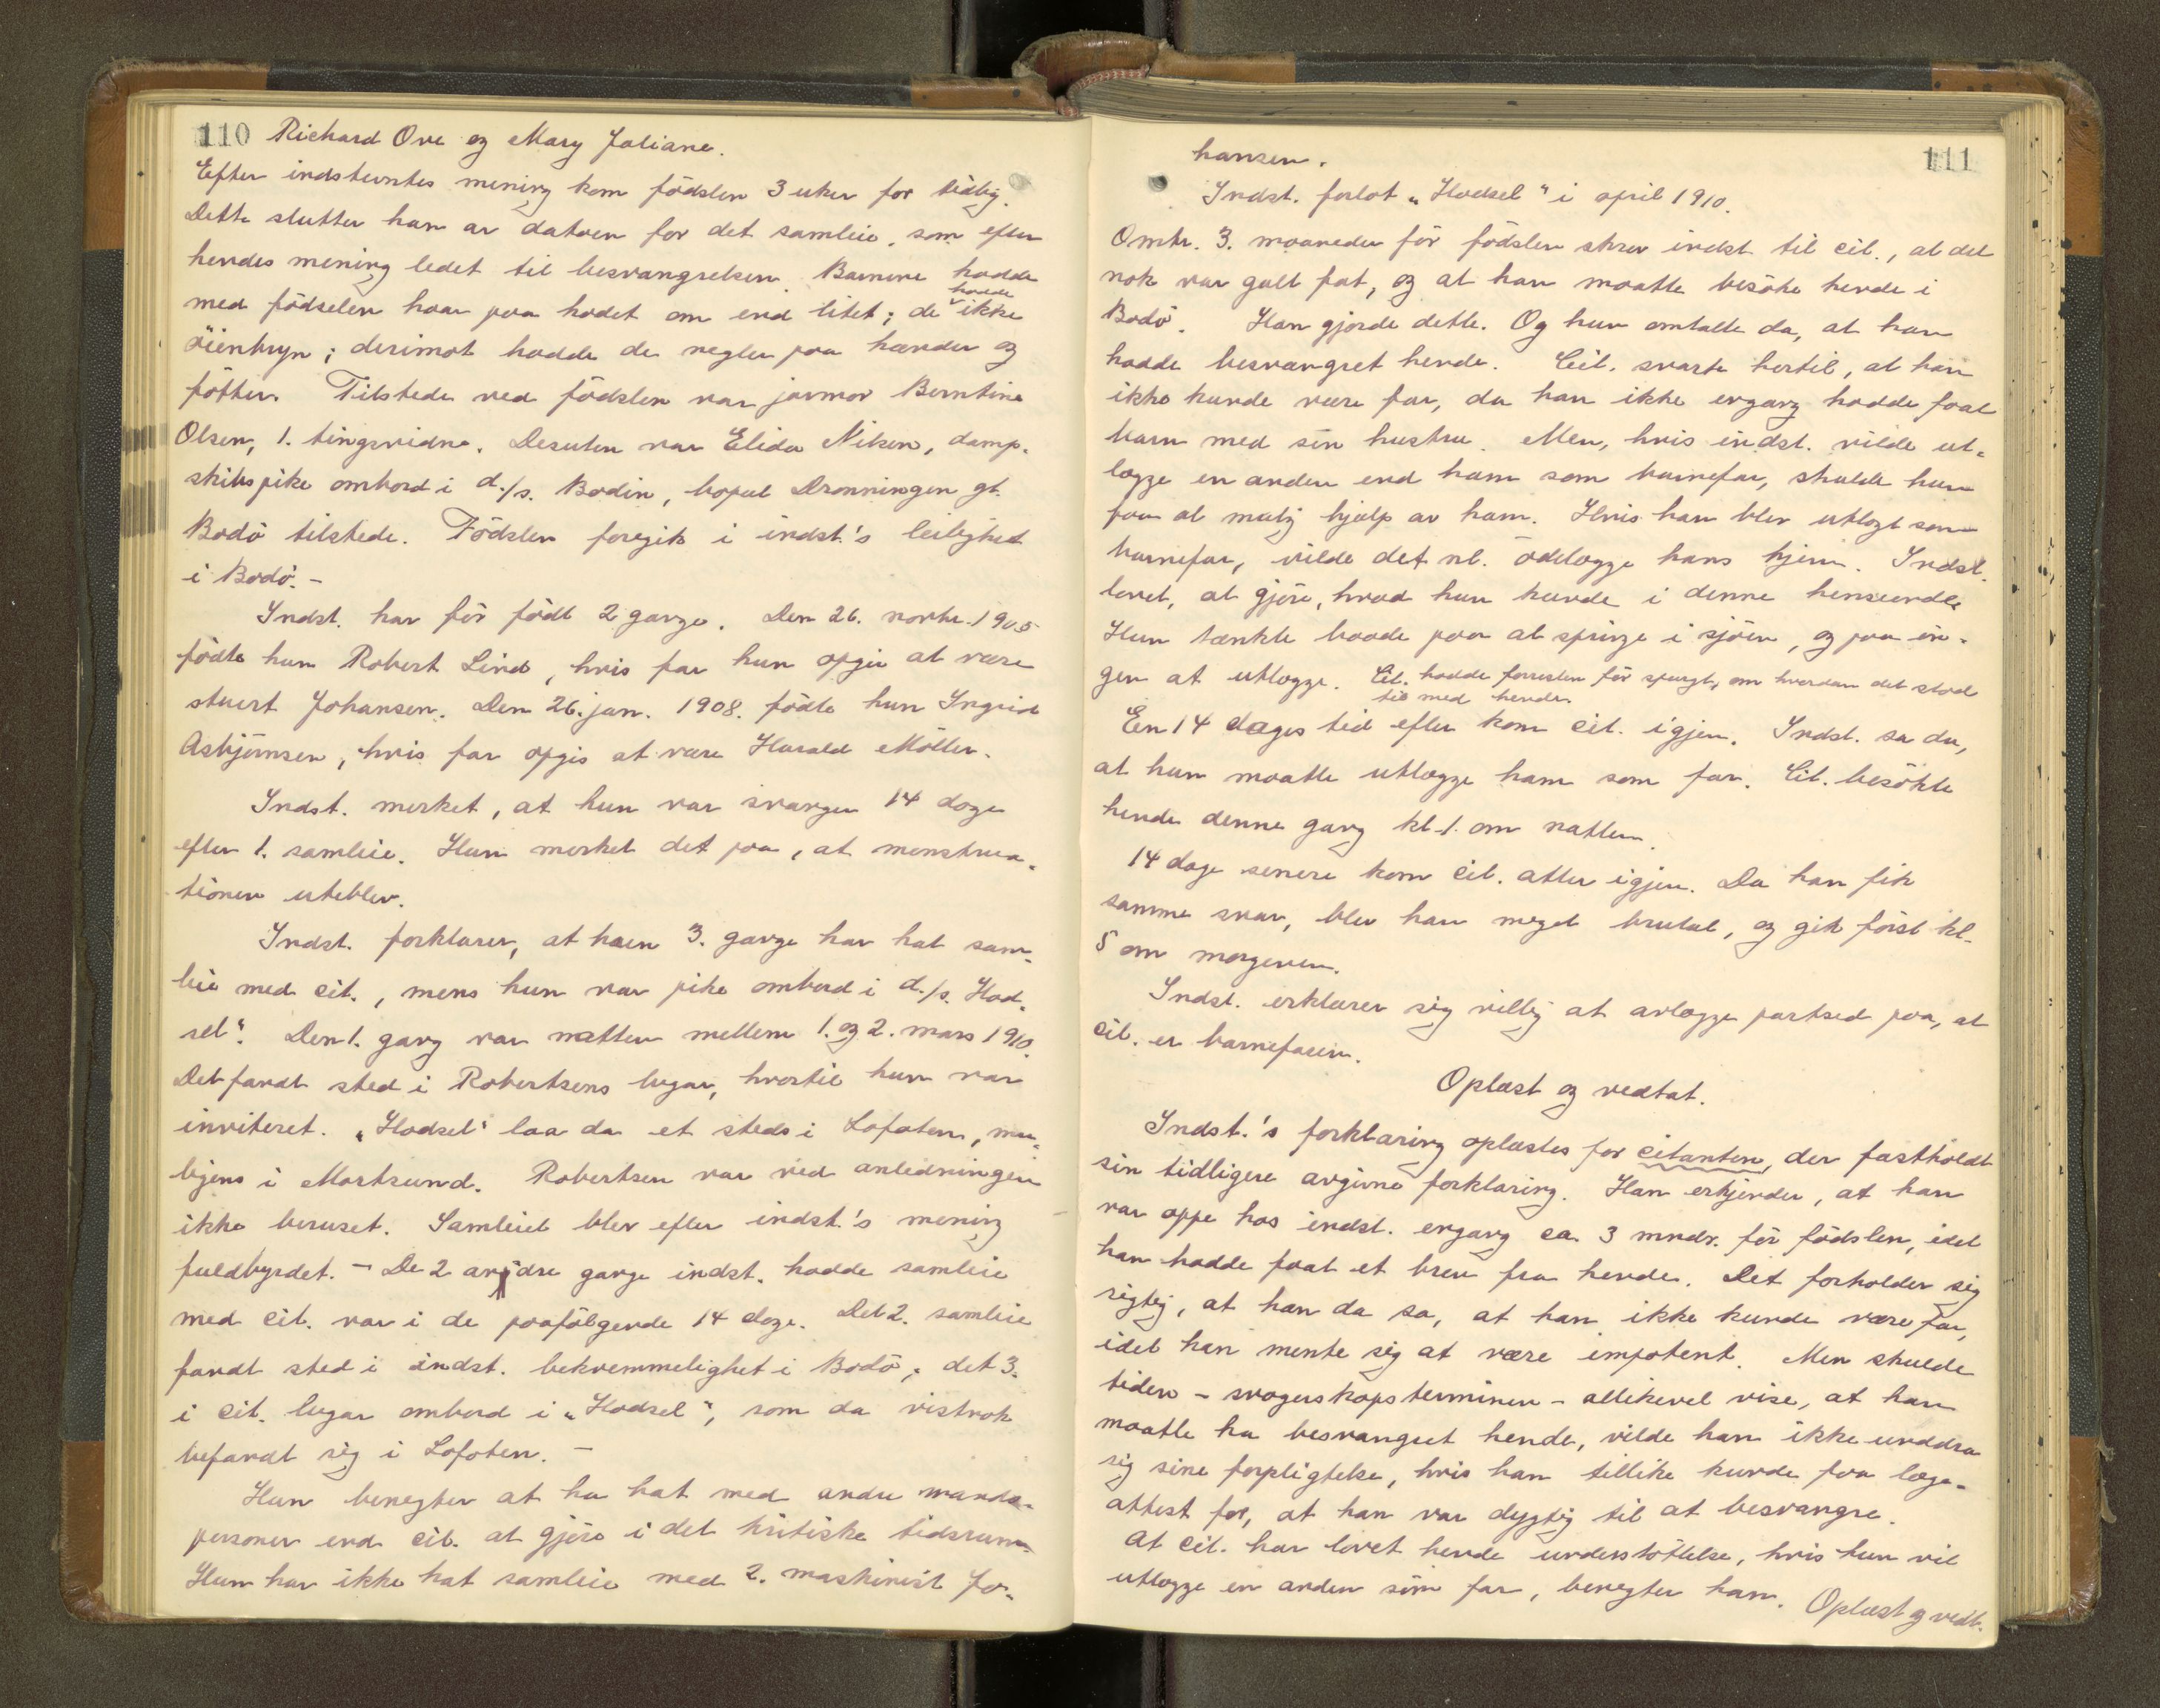 110 Richard Ove og Mary Juliane.
Efter indstevntes mening kom födslen 3 uker for tidlig.
Dette slutter han av datoen for det samleie, som efter
hendes mening ledet til besvangrelsen. Barnene hadde
med födselen haar paa hodet om end litet; de havde ikke
öienbryn; derimot hadde de negler paa hænder og
fötter. Tilstede ved födslen var jormor Berntine
Olsen, 1. tingsvidne. Desuten var Elida Nilsen, damp-
skibspike ombord i d./s. Bodin, bopæl Dronningen gt.
Bodö tilstede. Födslen foregik i indst.'s leilighet
i Bodö. -
Indst. har för födt 2 gange. Den 26. novbr. 1905
födte hun Robert Lind, hvis far hun opgir at være
stuert Johansen. Den 26. jan. 1908. födte hun Ingrid
Asbjörnsen, hvis far opgis at være Harald Möller.
Indst. merket, at hun var svanger 14 dage
efter 1. samleie. Hun merket det paa, at menstrua-
tionen uteblev.
Indst. forklarer, at hun 3. gange har hat sam-
leie med cit., mens hun var pike ombord i d./s. Had-
sel“. Den 1. gang var natten mellem 1. og 2. mars 1910.
Det fandt sted i Robertsens lugar, hvortil hun var
inviteret. „Hadsel“ laa da et steds i Lofoten, mu-
ligens i Mortsund. Robertsen var ved anledningen
ikke beruset. Samleiet blev efter indst.'s mening
fuldbyrdet. - De 2 andre gange indst. hadde samleie
med cit. var i de paafölgende 14 dage. Det 2. samleie
fandt sted i indst. bekvemmelighet i Bodö; det 3.
i cit. lugar ombord i „Hadsel“, som da vistnok
befandt sig i Lofoten. -
Hun benegter at ha hat med andre mands-
personer end cit. at gjöre i det kritiske tidsrum.
Hun har ikke hat samleie med 2. maskinist Jo-
111
hansen.
Indst. forlot „Hadsel“ i april 1910.
Omtr. 3. maaneder för födslen skrev indst. til cit., at det
nok var galt fat, og at han maatte besöke hende i
Bodö. Han gjorde dette. Og hun omtalte da, at han
hadde besvangret hende. Cit. svarte hertil, at han
ikke kunde være far, da han ikke engang hadde faat
barn med sin hustru. Men, hvis indst. vilde ut-
lægge en anden end ham som barnefar, skulde hun
faa al mulig hjælp av ham. Hvis han blev utlagt som
barnefar, vilde det nl. ödelægge hans hjem. Indst.
lovet, at gjöre, hvad hun kunde i denne henseende
Hun tænkte baade paa at springe i sjöen, og paa in-
gen at utlægge. Cit. hadde forresten för spurgt, om hvordan det stod
til med hende.
En 14 dages tid efter kom cit. igjen. Indst. sa da,
at hun maatte utlægge ham som far. Cit. besökte
hende denne gang kl. 1. om natten.
14 dage senere kom cit. atter igjen. Da han fik
samme svar, blev han meget brutal, og gik först kl.
5 om morgenen.
Indst. erklærer sig villig at avlægge partsed paa, at
cit. er barnefaren.
Oplæst og vedtat.
Indst.'s forklaring oplæstes for citanten, der fastholdt
sin tidligere avgivne forklaring. Han erkjender, at han
var oppe hos indst. engang ca. 3 mndr. för födslen, idet
han hadde faat et brev fra hende. Det forholder sig
rigtig, at han da sa, at han ikke kunde være far,
idet han mente sig at være impotent. Men skulde
tiden - svangerskapsterminen - allikevel vise, at han
maatte ha besvangret hende, vilde han ikke unddra
sig sine forpligtelse, hvis han tillike kunde faa læge-
attest for, at han var dygtig til at besvangre.
At cit. har lovet hende understöttelse, hvis hun vil
utlægge en anden som far, benegter han. Oplæst og vedt.